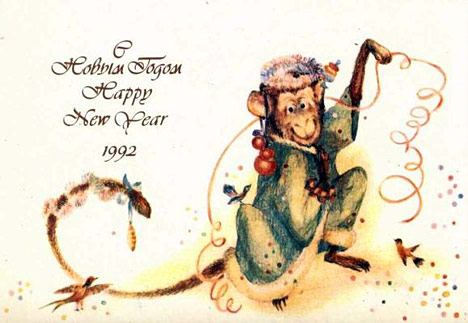 С
Новым Годом
Happy
New Year
1992